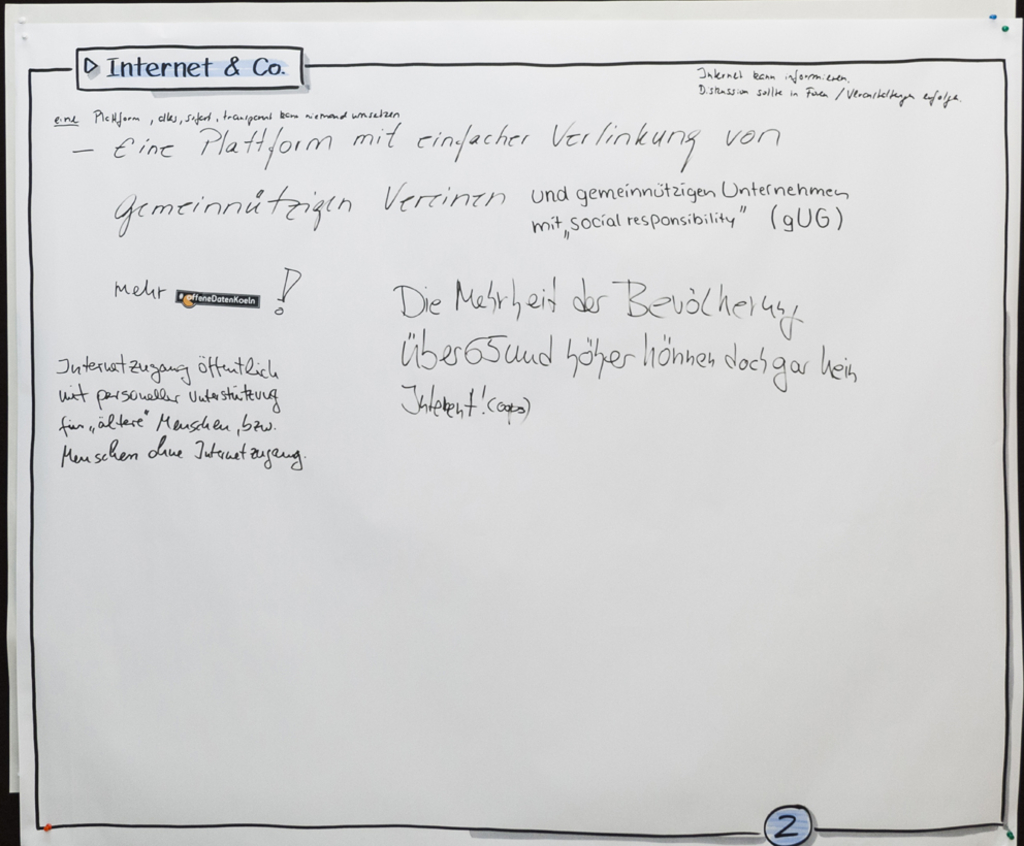 ▷ Internet & Co.
Internet kann informieren.
Diskussion sollte in Foren / Veranstaltungen erfolgen.
eine Plattform, alles, sofort, transparent kann niemand umsetzen
– Eine Plattform mit einfacher Verlinkung von
gemeinnützigen Vereinen und gemeinnützigen Unternehmen
mit „social responsibility" (gUG)
mehr #offeneDatenKoeln !
Die Mehrheit der Bevölkerung
über 65 und höher können doch gar kein
Internet öffentlich
Internetzugang öffentlich
mit personeller Unterstützung
für „ältere" Menschen, bzw.
Menschen ohne Internetzugang.
2